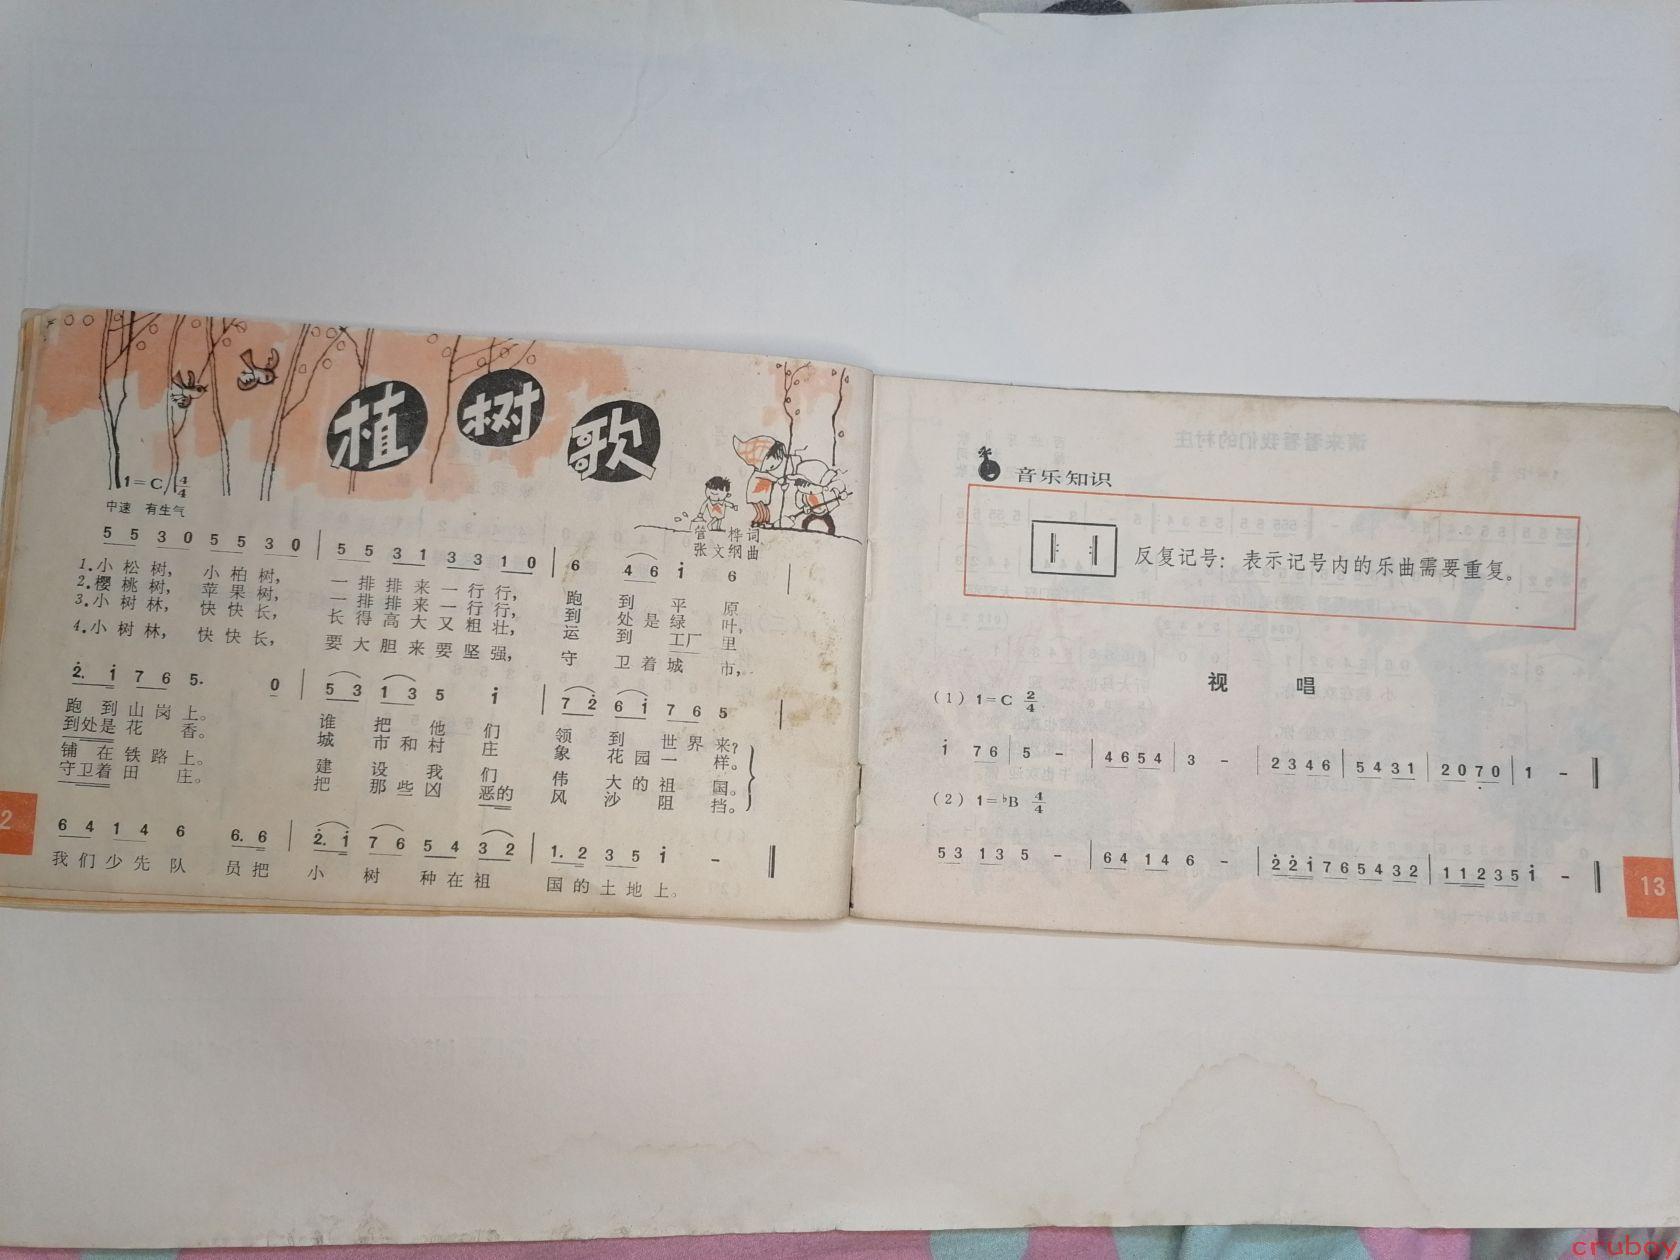 植树歌
1=C 4/4
中速 有生气
管桦 词
张文纲 曲
5 5 3 0 5 5 3 0 | 5 5 3 1 3 3 1 0 | 6 4 6 i 6 |
1.小松树， 小柏树， 一排排来一行行， 跑到平原
2.樱桃树， 苹果树， 一排排来一行行， 到处是绿叶，
3.小树林， 快快长， 长得高大又粗壮， 运到工厂里
4.小树林， 快快长， 要大胆来要坚强， 守卫着城市，
2̇. i 7 6 5. 0 | 5 3 1 3 5 i | 7 2̇ 6 i 7 6 5 |
跑到山岗上。 谁把他们领到世界来？
到处是花香。 城市和村庄象花园一样。
铺在铁路上。 建设我们伟大的祖国。
守卫着田庄。 把那些凶恶的风沙阻挡。
6 4 1 4 6 6. 6 | 2̇. i 7 6 5 4 3 2 | 1. 2 3 5 i - ‖
我们少先队员把小树种在祖国的土地上。
2
音乐知识
反复记号：表示记号内的乐曲需要重复。
视唱
(1) 1=C 2/4
i 7 6 | 5 - | 4 6 5 4 | 3 - | 2 3 4 6 | 5 4 3 1 | 2 0 7̣ 0 | 1 - ‖
(2) 1=♭B 4/4
5 3 1 3 5 - | 6 4 1 4 6 - | 2̇ 2̇ i 7 6 5 4 3 2 | 1 1 2 3 5 i - ‖
13
cruboy